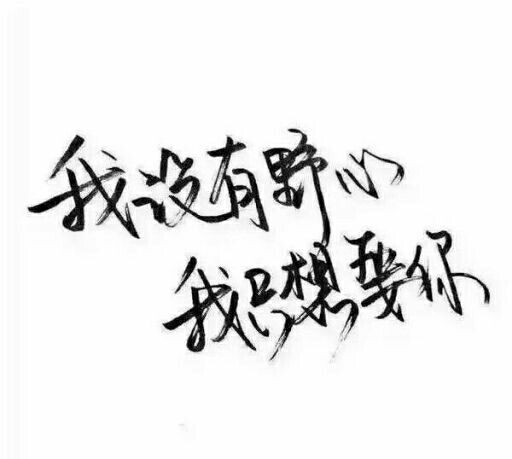 我没有野心
我只想要你